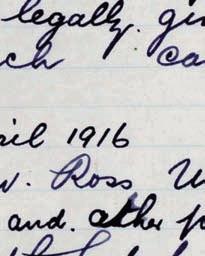 legally. gi
ch ca
ril 1916
w. Ross W
and. other p